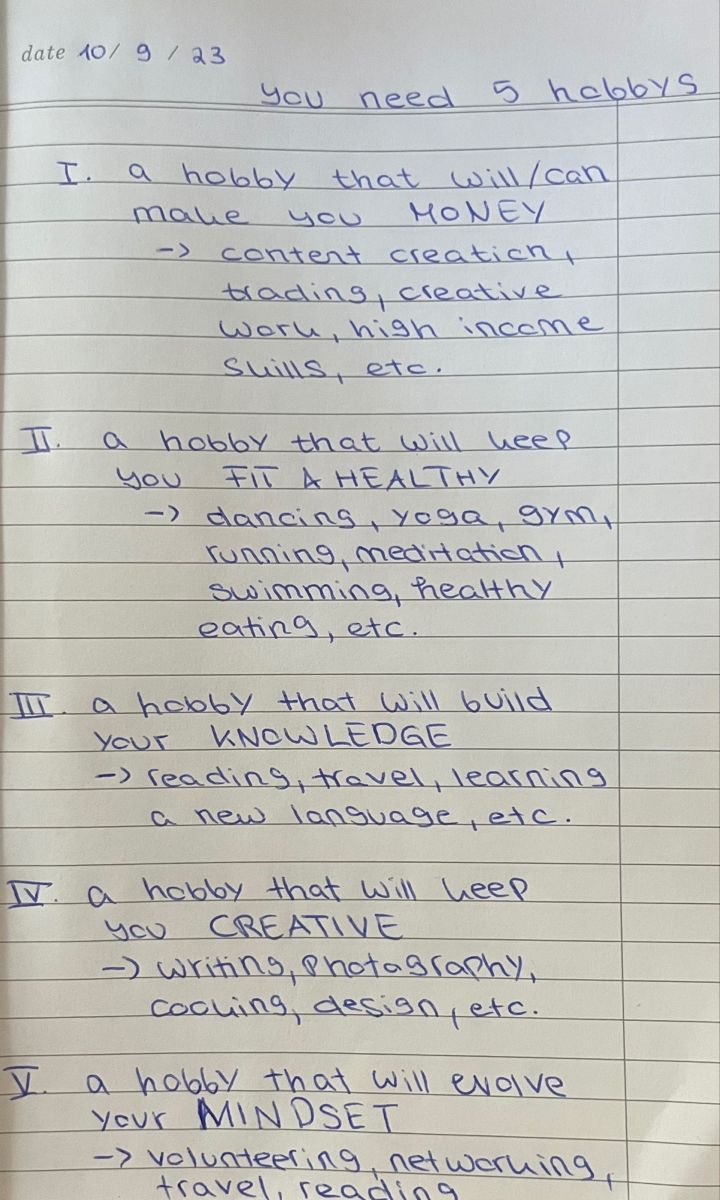 date 10/ 9 / 23
you need 5 hobbys
I. a hobby that will/can
make you MONEY
-> content creation,
trading, creative
work, high income
skills, etc.
II. a hobby that will keep
you FIT & HEALTHY
-> dancing, yoga, gym,
running, meditation,
swimming, healthy
eating, etc.
III. a hobby that will build
your KNOWLEDGE
-> reading, travel, learning
a new language, etc.
IV. a hobby that will keep
you CREATIVE
-> writing, photography,
cooking, design, etc.
V. a hobby that will evolve
your MINDSET
-> volunteering, networking,
travel, reading